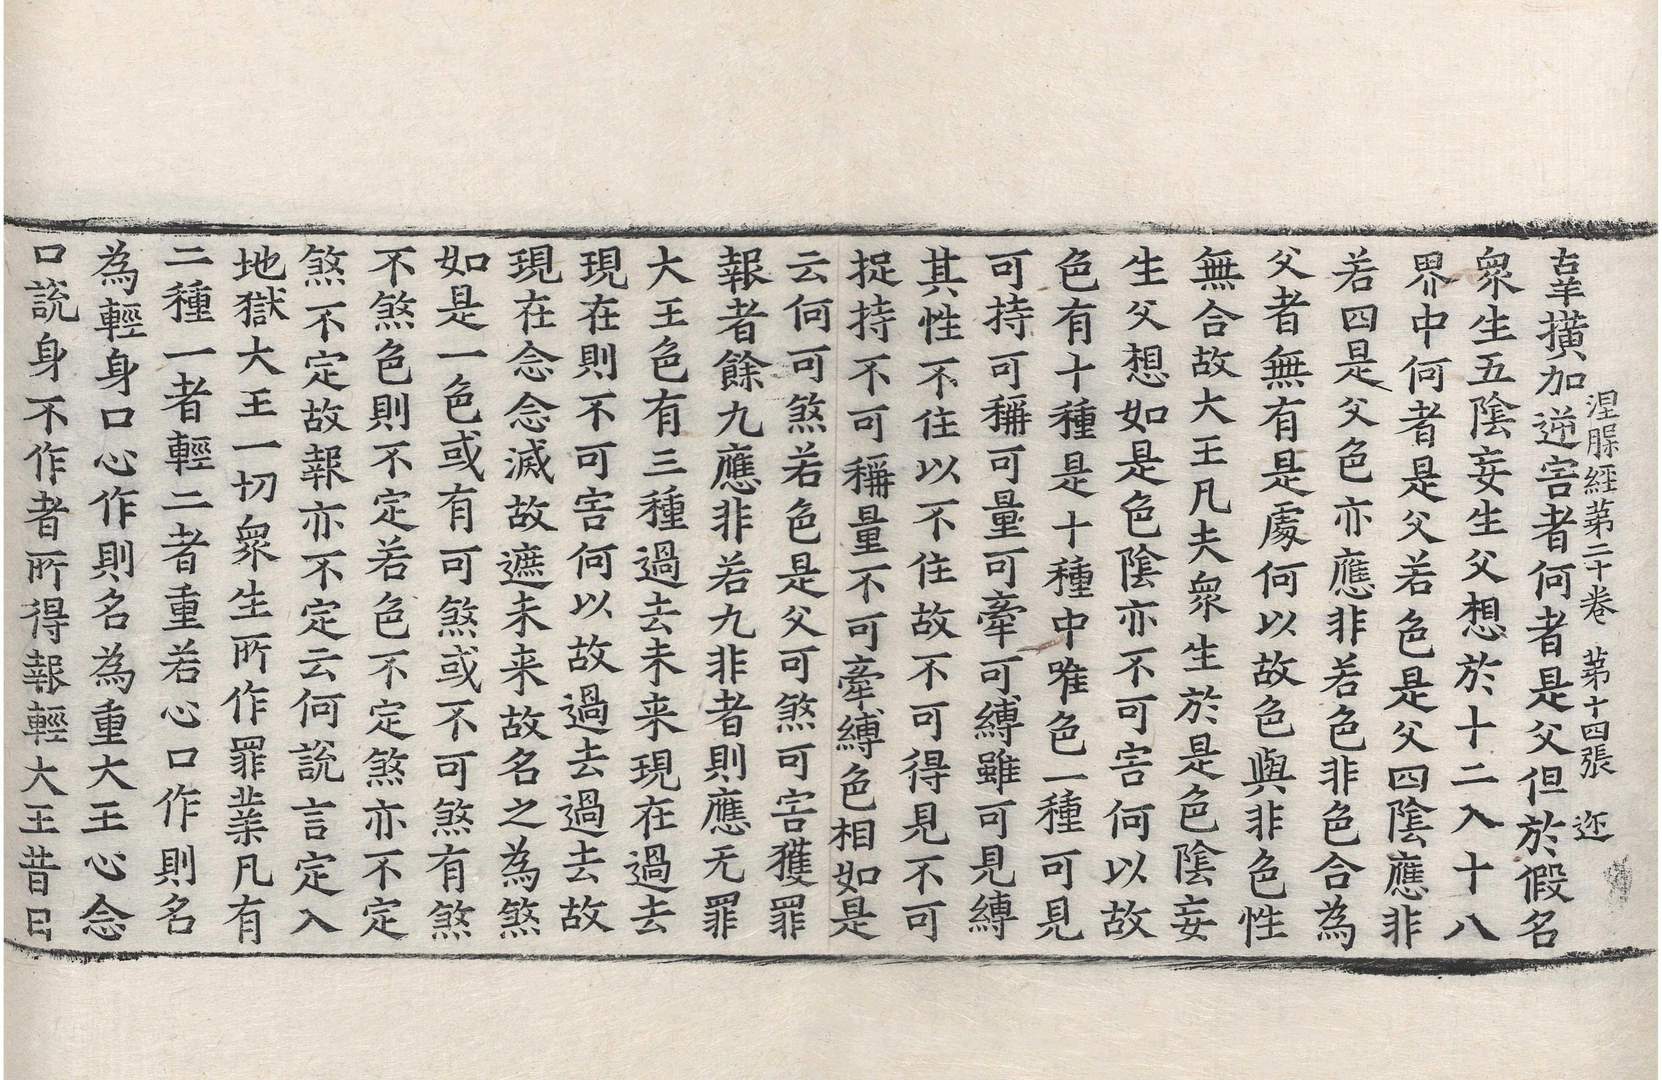 涅槃經第二十卷　第十四張　迩
辜撗加逆害者何者是父但於假名
衆生五隂妄生父想於十二入十八
界中何者是父若色是父四隂應非
若四是父色亦應非若色非色合為
父者無有是處何以故色與非色性
無合故大王凡夫衆生於是色隂妄
生父想如是色隂亦不可害何以故
色有十種是十種中唯色一種可見
可持可稱可量可牽可縛雖可見縛
其性不住以不住故不可得見不可
捉持不可稱量不可牽縛色相如是
云何可煞若色是父可煞可害獲罪
報者餘九應非若九非者則應无罪
大王色有三種過去未来現在過去
現在則不可害何以故過去過去故
現在念念滅故遮未来故名之為煞
如是一色或有可煞或不可煞有煞
不煞色則不定若色不定煞亦不定
煞不定故報亦不定云何說言定入
地獄大王一切衆生所作罪業凡有
二種一者輕二者重若心口作則名
為輕身口心作則名為重大王心念
口說身不作者所得報輕大王昔日